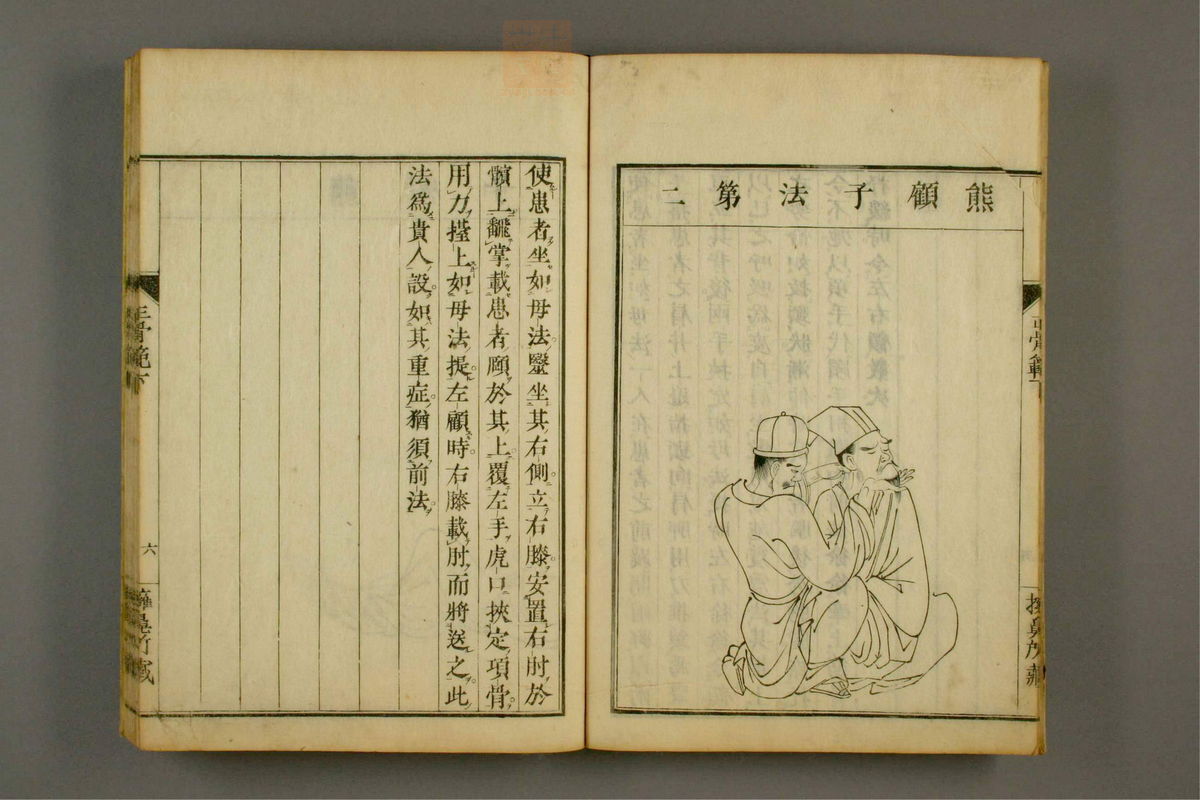 熊顧子法第二
使患者坐如母法璺坐其右側立右膝安置右肘於
髕上飜掌載患者頤於其上覆左手虎口挾定項骨
用力撞上如母法提左顧時右膝載肘而將送之此
法爲貴人設如其重症猶須前法
正骨範下
六